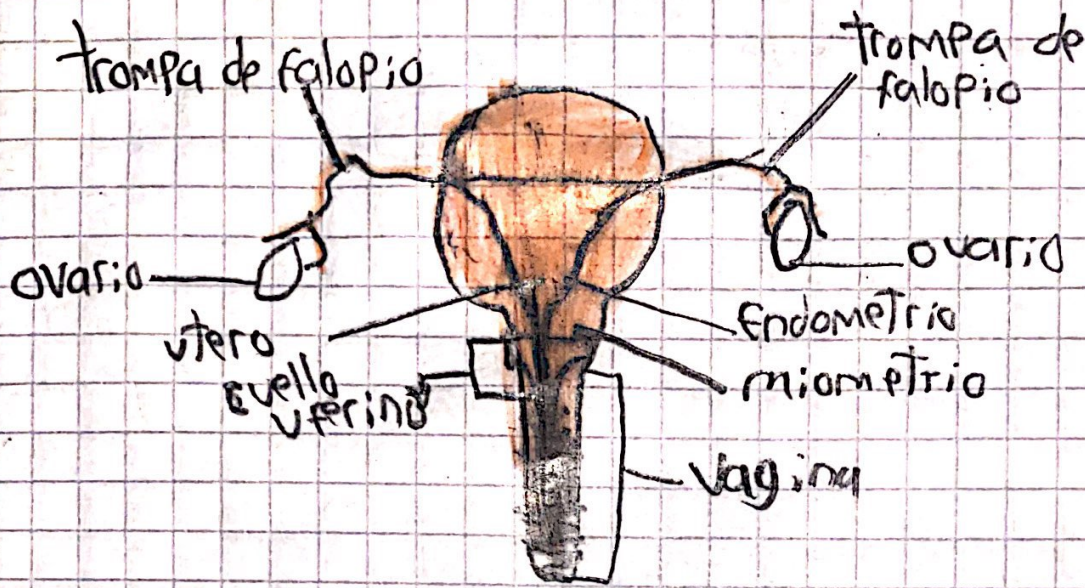 trompa de falopio
trompa de
falopio
ovario
ovario
utero
Endometrio
cuello
uterino
miometrio
vagina